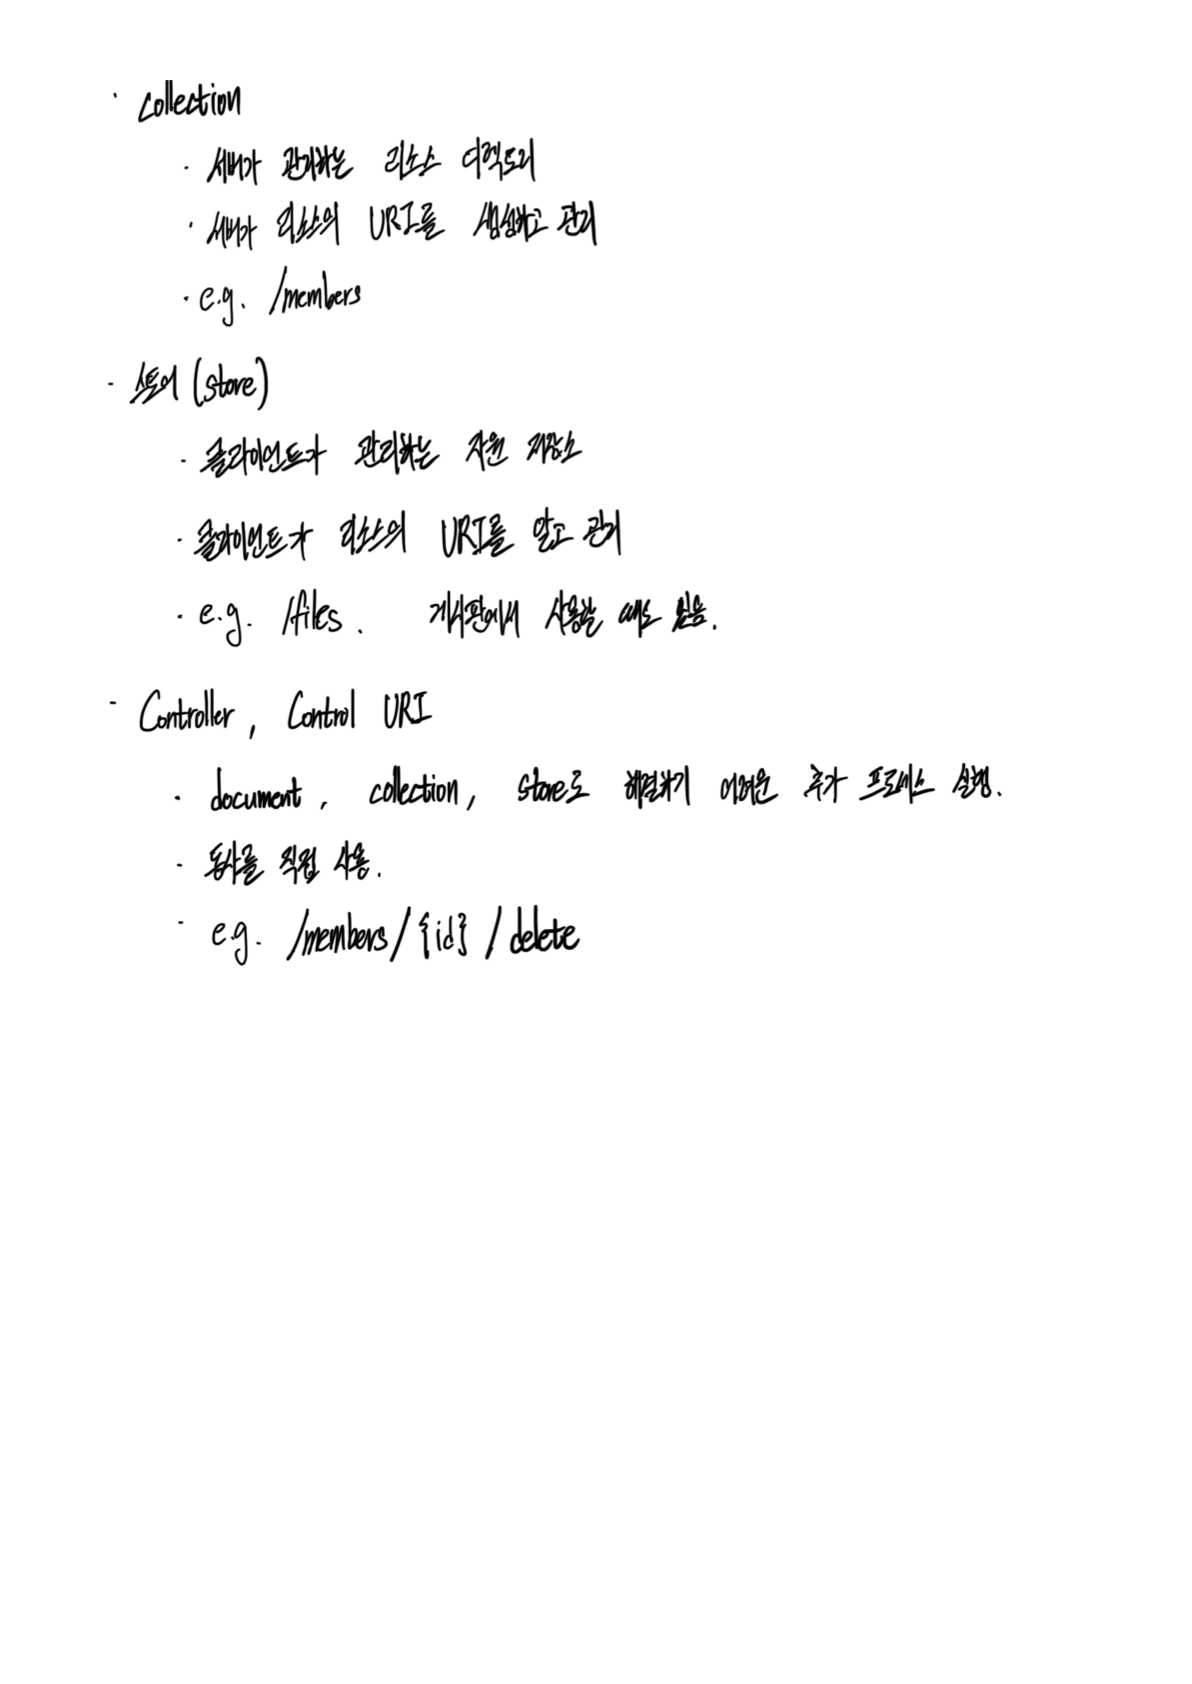 · Collection
· 서버가 관리하는 리소스 디렉토리
· 서버가 리소스의 URI를 생성하고 관리
· e.g. /members
· 스토어 (store)
· 클라이언트가 관리하는 자원 저장소
· 클라이언트가 리소스의 URI를 알고 관리
· e.g. /files. 게시판에서 사용할 때도 있음.
- Controller, Control URI
· document, collection, store로 해결하기 어려운 추가 프로세스 실행.
· 동사를 직접 사용.
- e.g. /members/{id}/delete